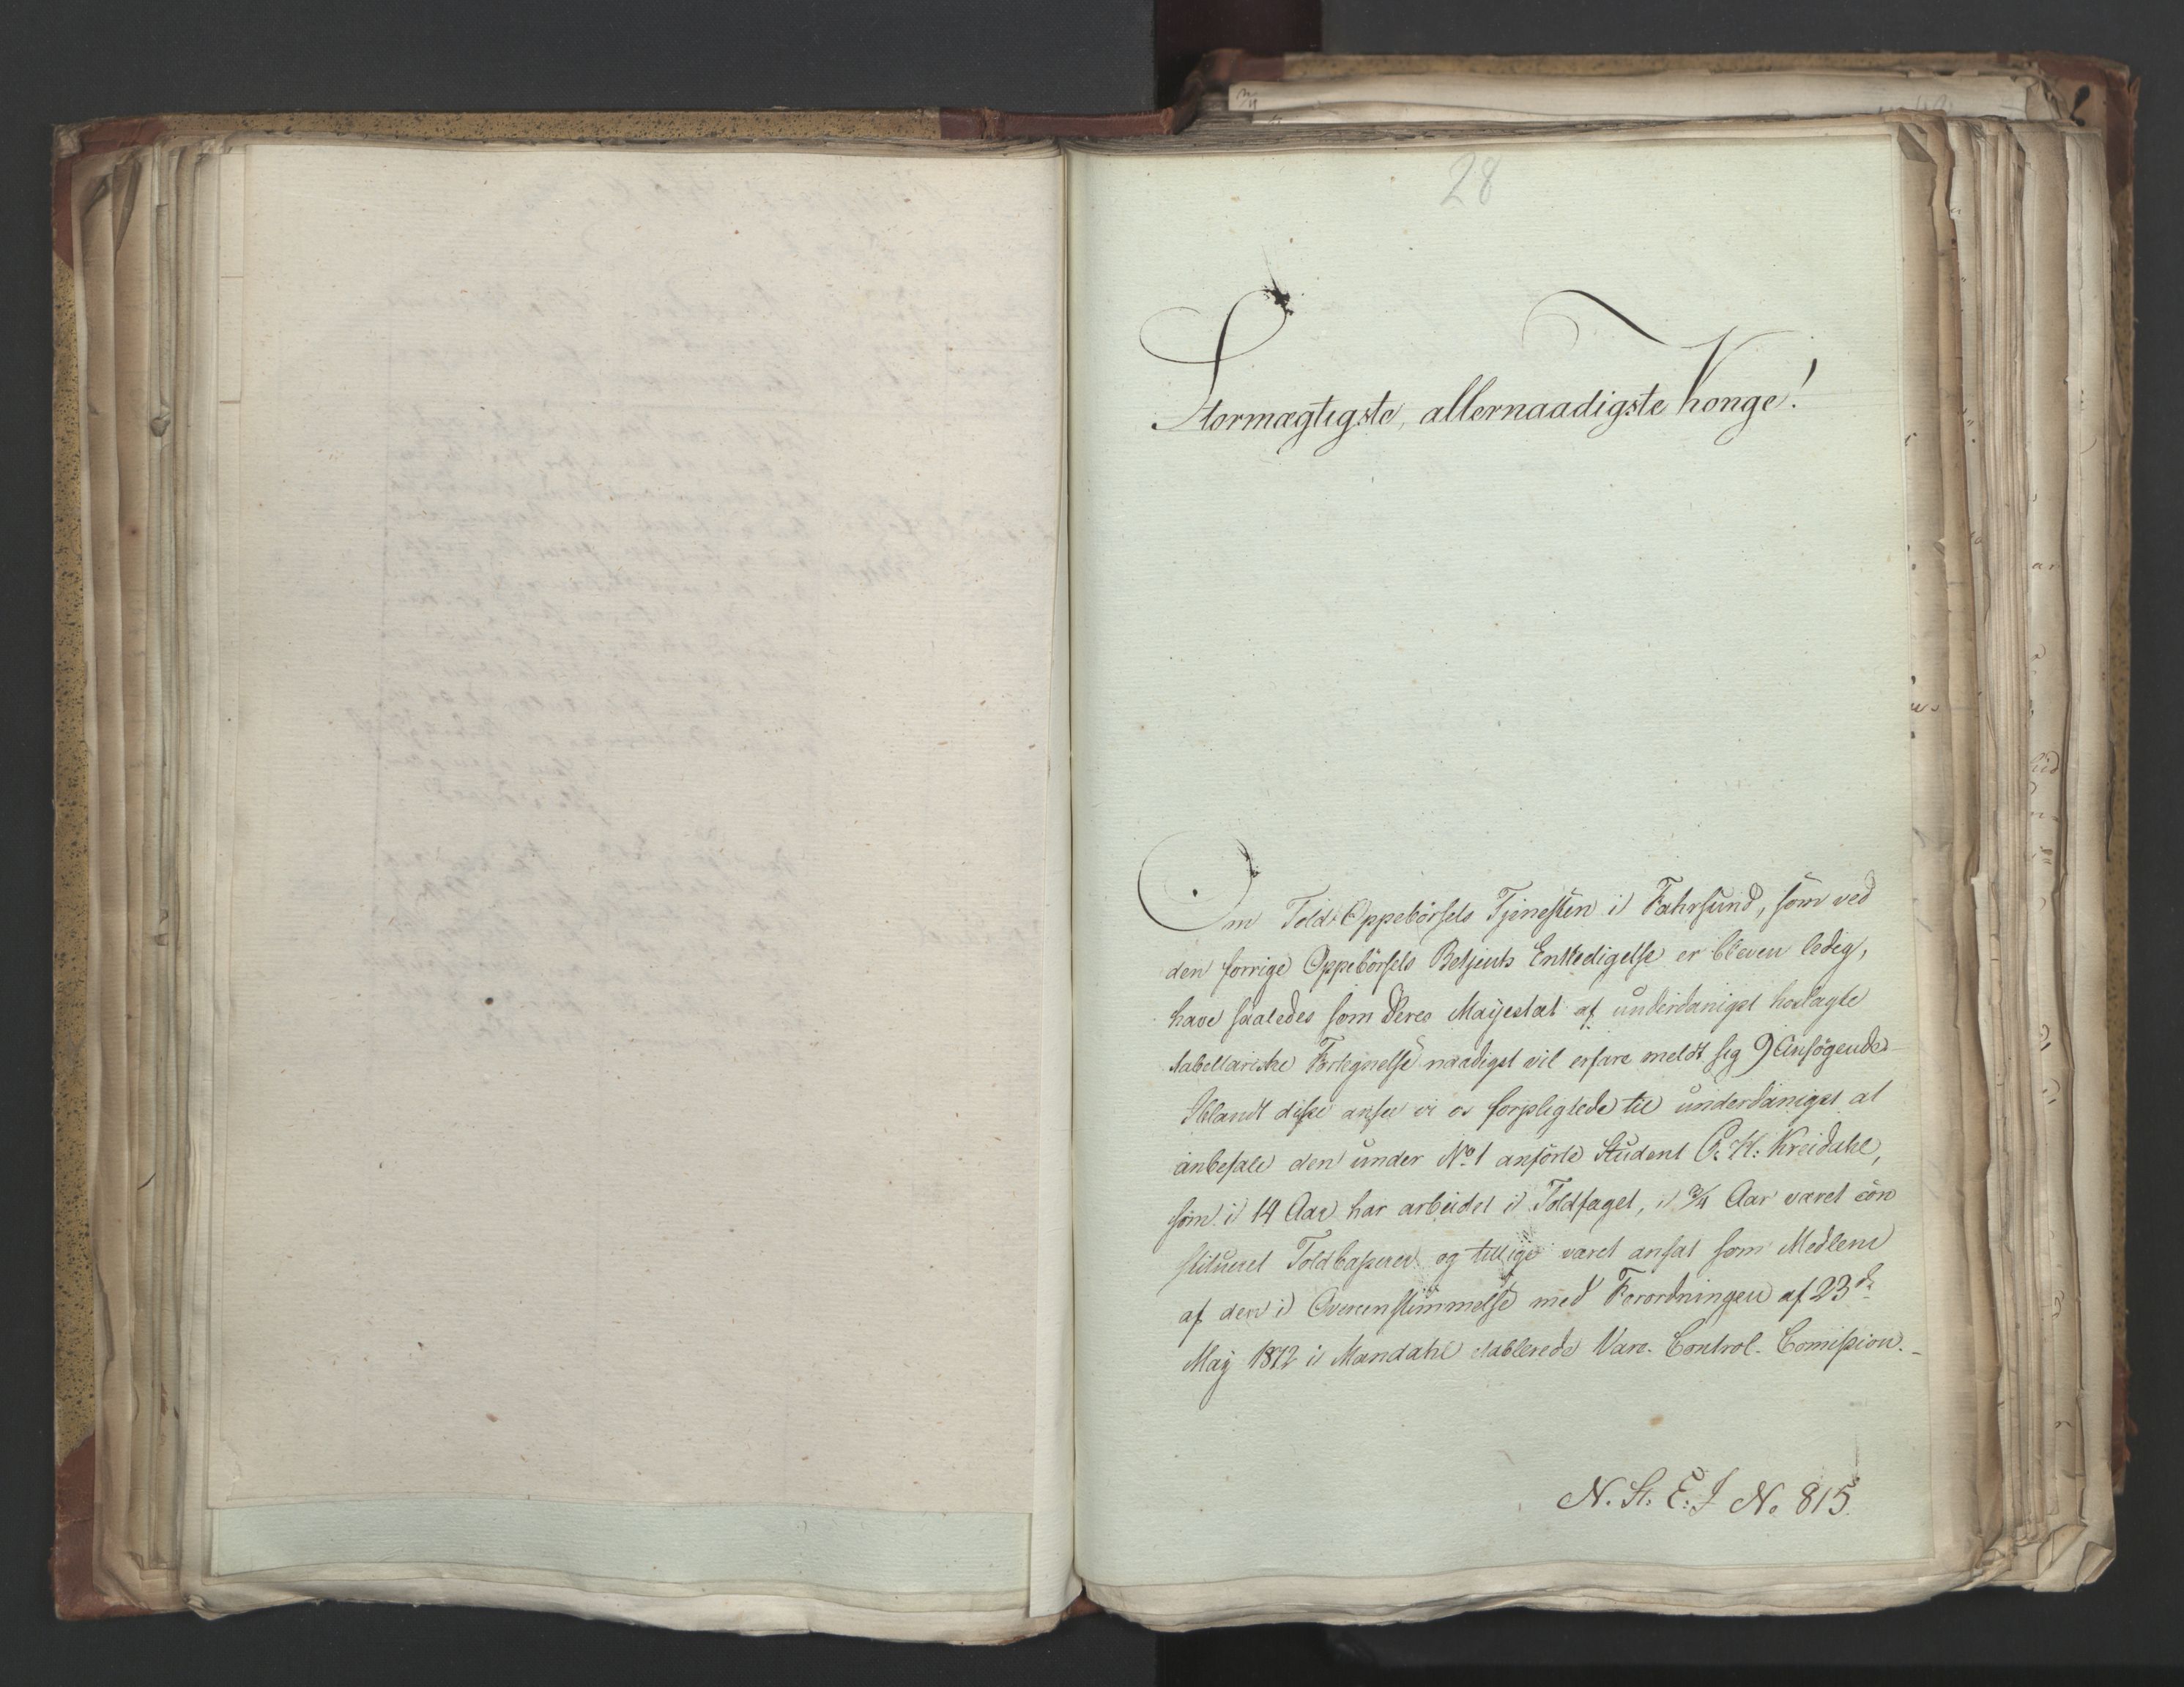 28
Stormægtigste, allernaadigste Konge!
Om Told-Oppebörsels Tjenesten i Fahrsund, som ved
den forrige Oppebörsels Betjents Entledigelse er bleven ledig,
have saaledes som Deres Majestæt af underdanigst hoslagte
tabellariske Fortegnelse naadigst vil erfare meldt sig 9 Ansögende
Iblandt disse ansee vi os forpligtede til underdanigst at
anbefale den under No. 1 anförte Student C. H. Kreidahl,
som i 14 Aar har arbeidet i Toldfaget, i 3/4 Aar været con
stitueret Toldkasserer og tillige været ansat som Medlem
af den i Overeenstemmelse med Forordningen af 23de
May 1812 i Mandahl etablerede Vare-Control-Comission.-
N. St. E. J No 815.